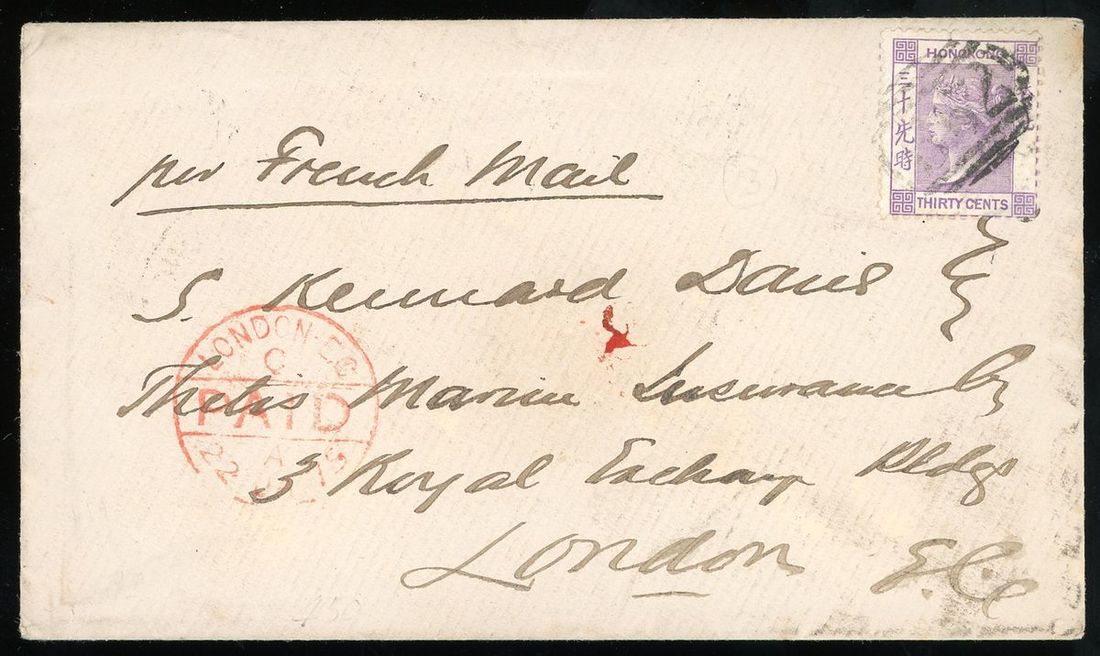 HONG KONG
三十先時
THIRTY CENTS
per French Mail
S. Kennard Davis Esq
Thetis Marine Insurance Cy
3 Royal Exchange Bldgs
London E.C.
LONDON·E.C
C
PAID
22